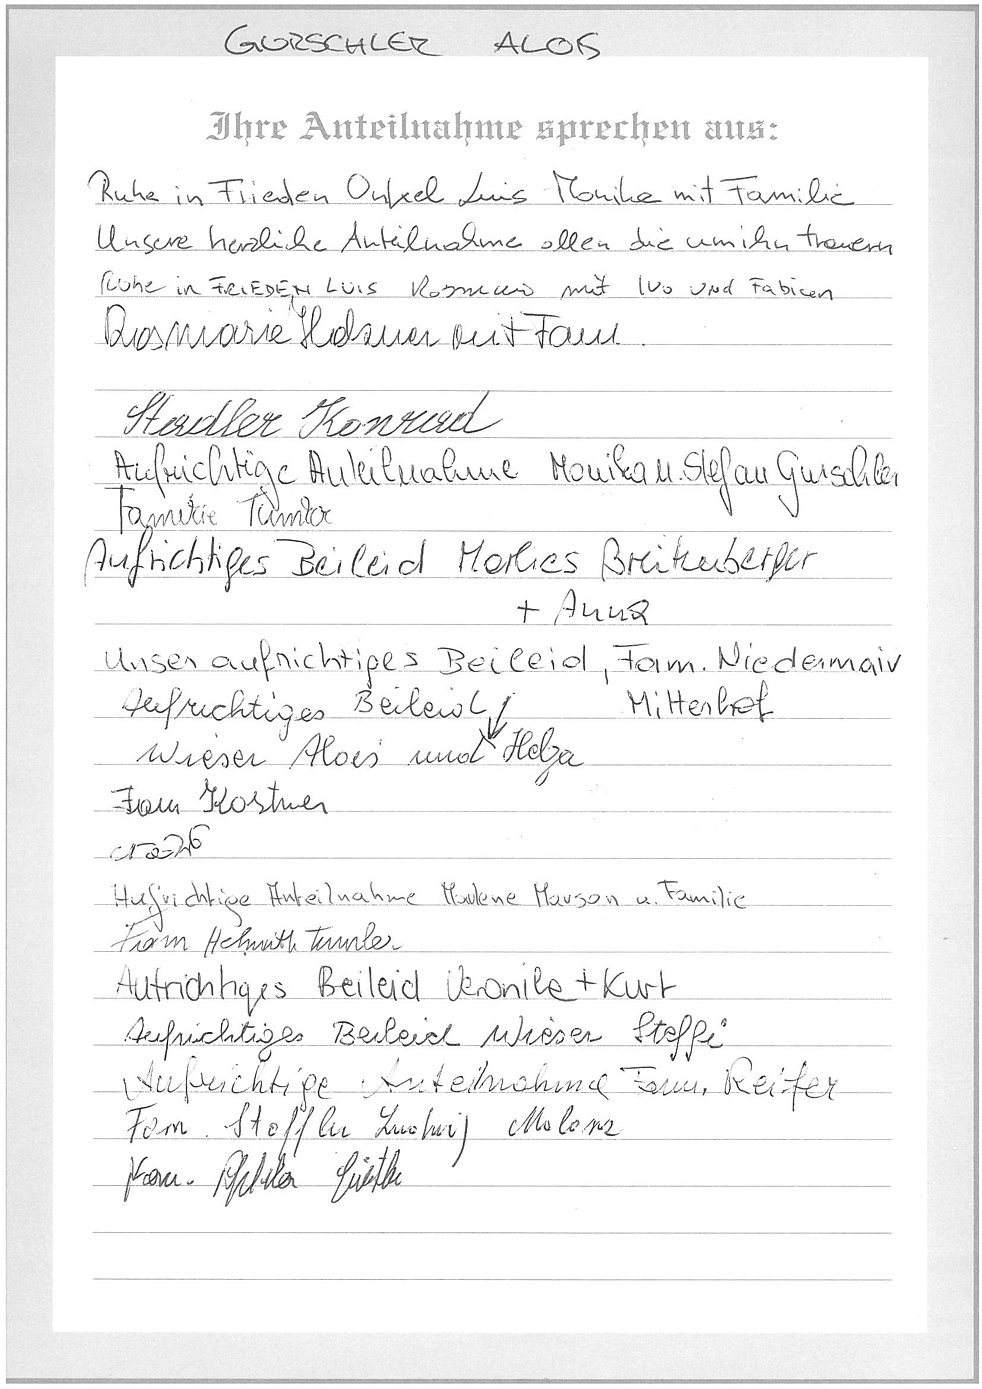 GURSCHLER ALOIS
Ihre Anteilnahme sprechen aus:
Ruhe in Frieden Onkel Luis Monika mit Familie
Unsere herzliche Anteilnahme allen die um ihn trauern
Ruhe in FRIEDEN LUIS mit Ivo UND Fabian
Rosmarie mit Fam.
Stadler Konrad
Aufrichtige Anteilnahme Monika u. Stefan Gurschler
Familie
Aufrichtiges Beileid Marlies Breitenberger
+ Anna
Unser aufrichtiges Beileid, Fam. Niedermair
Aufrichtiges Beileid Mitterhof
Wieser Alois und Helga
Fam Kostner
Aufrichtige Anteilnahme Marlene u. Familie
Fam Helmuth Tumler
Aufrichtiges Beileid Veronika + Kurt
Aufrichtiges Beileid Wieser Steffi
Aufrichtige Anteilnahme Fam. Reifer
Fam. Ludwig
Fam.